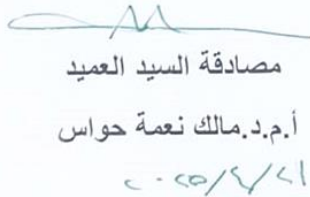 مصادقة السيد العميد
أ.م.د.مالك نعمة حواس